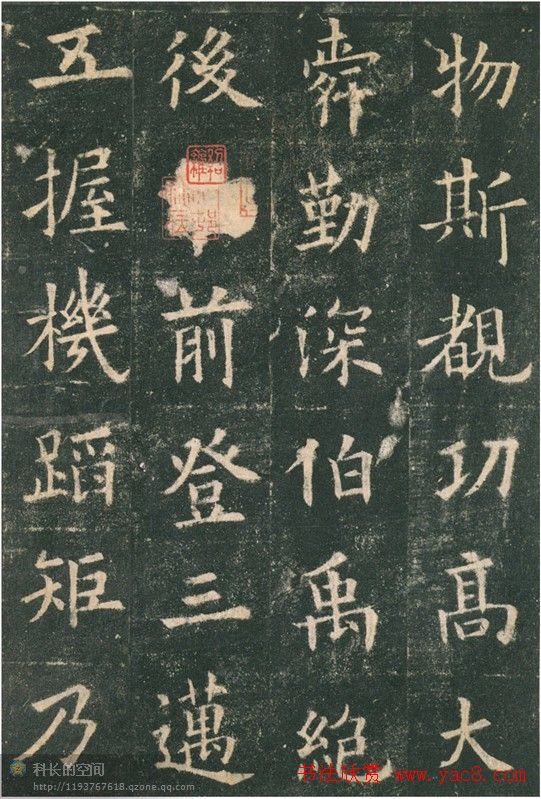 物斯覩功髙大
舜勤深伯禹絕
後前登三邁
五握機蹈矩乃
科长的空间
http://1193767618.qzone.qq.com
书法欣赏 www.yac8.com